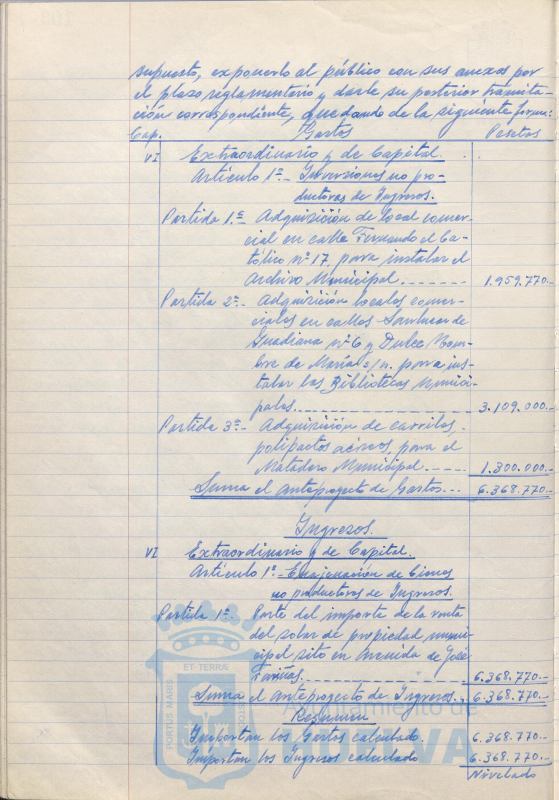 supuesto, exponerlo al público con sus anexos por
el plazo reglamentario y darle su posterior tramita-
ción correspondiente, quedando de la siguiente forma:
Cap. Gastos Pesetas
VI Extraordinario y de Capital.
Artículo 1º- Inversiones no pro-
ductoras de Ingresos.
Partida 1ª- Adquisición de local comer-
cial en calle Fernando el Ca-
tólico nº 17, para instalar el
Archivo Municipal. 1.959.770.-
Partida 2ª- Adquisición locales comer-
ciales en calles Sanlucar de
Guadiana nº 6 y Dulce Nom-
bre de María s/n. para ins-
talar las Bibliotecas Munici-
pales. 3.109.000.-
Partida 3ª- Adquisición de carriles
polipastos aéreos, para el
Matadero Municipal. 1.300.000.-
Suma el anteproyecto de Gastos... 6.368.770.-
Ingresos.
VI Extraordinario y de Capital.
Artículo 1º- Enajenación de bienes
no productores de Ingresos.
Partida 1ª. Parte del importe de la venta
del solar de propiedad muni-
cipal sito en Avenida de José
Fariñas. 6.368.770.-
Suma el anteproyecto de Ingresos.. 6.368.770.-
Resumen
Importan los Gastos calculado. 6.368.770.-
Importan los Ingresos calculado 6.368.770.-
Nivelado
PORTUS MARIS
ET TERRÆ
CUSTODIA
Ayuntamiento de
HUELVA